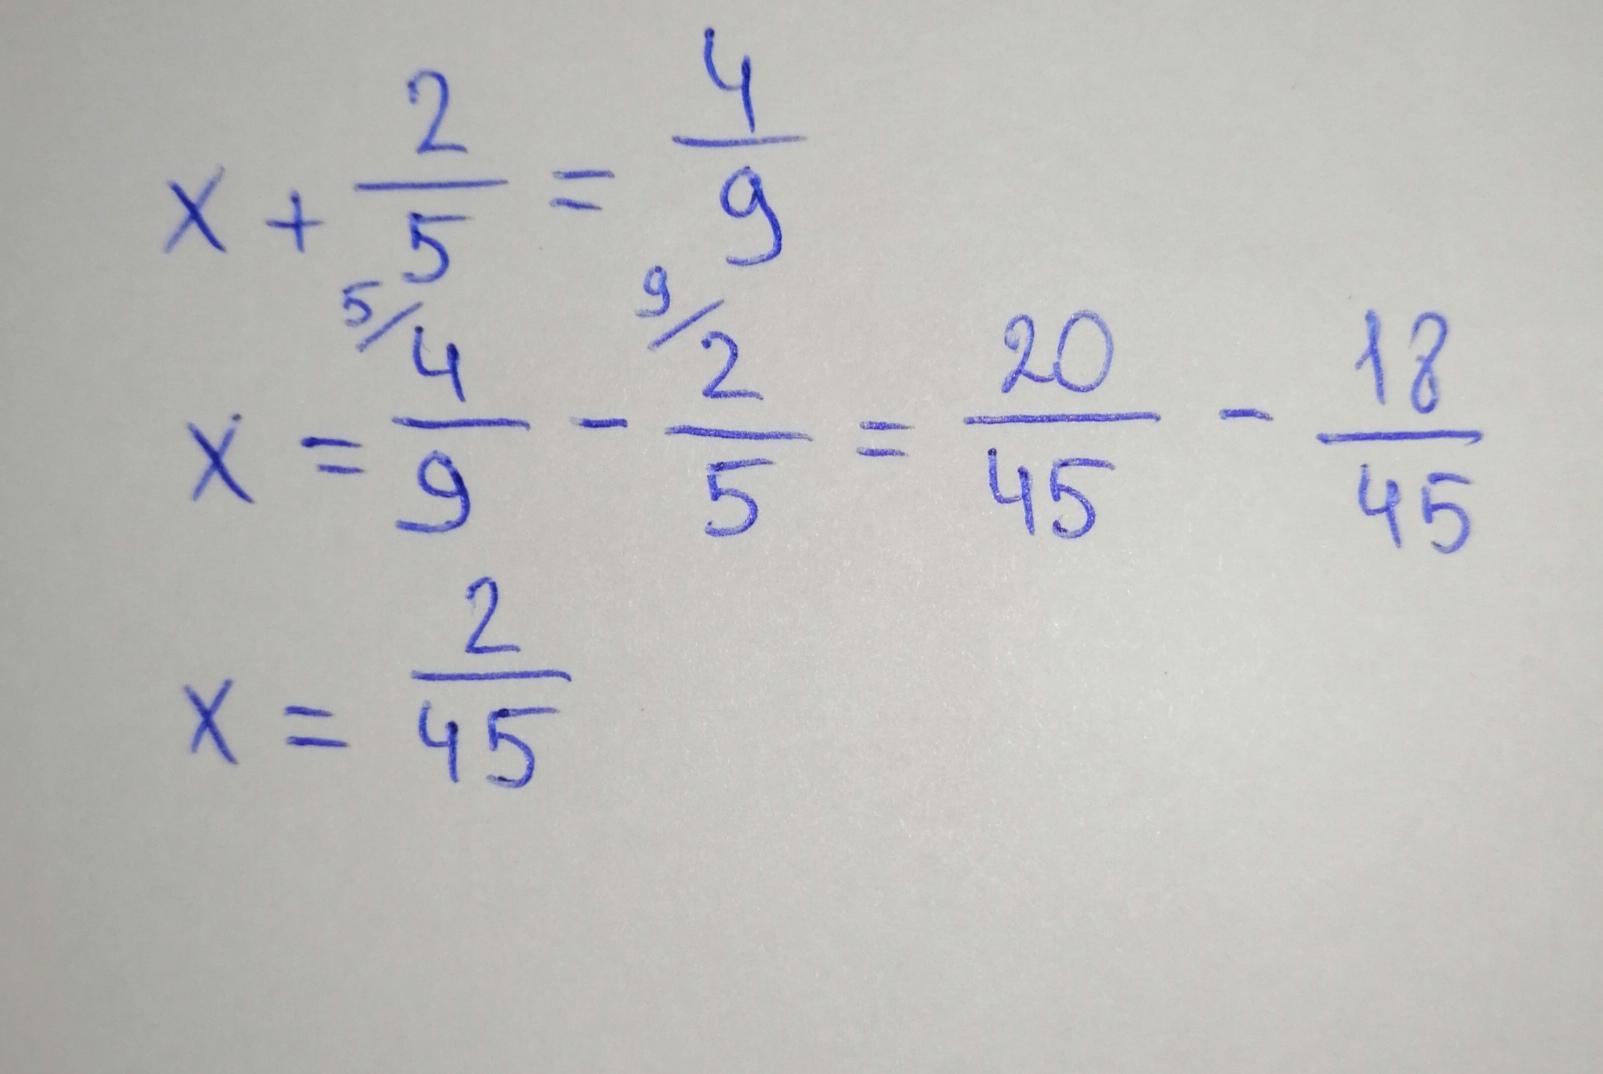 x + 2/5 = 4/9
x = 5/ 4/9 - 9/ 2/5 = 20/45 - 18/45
x = 2/45